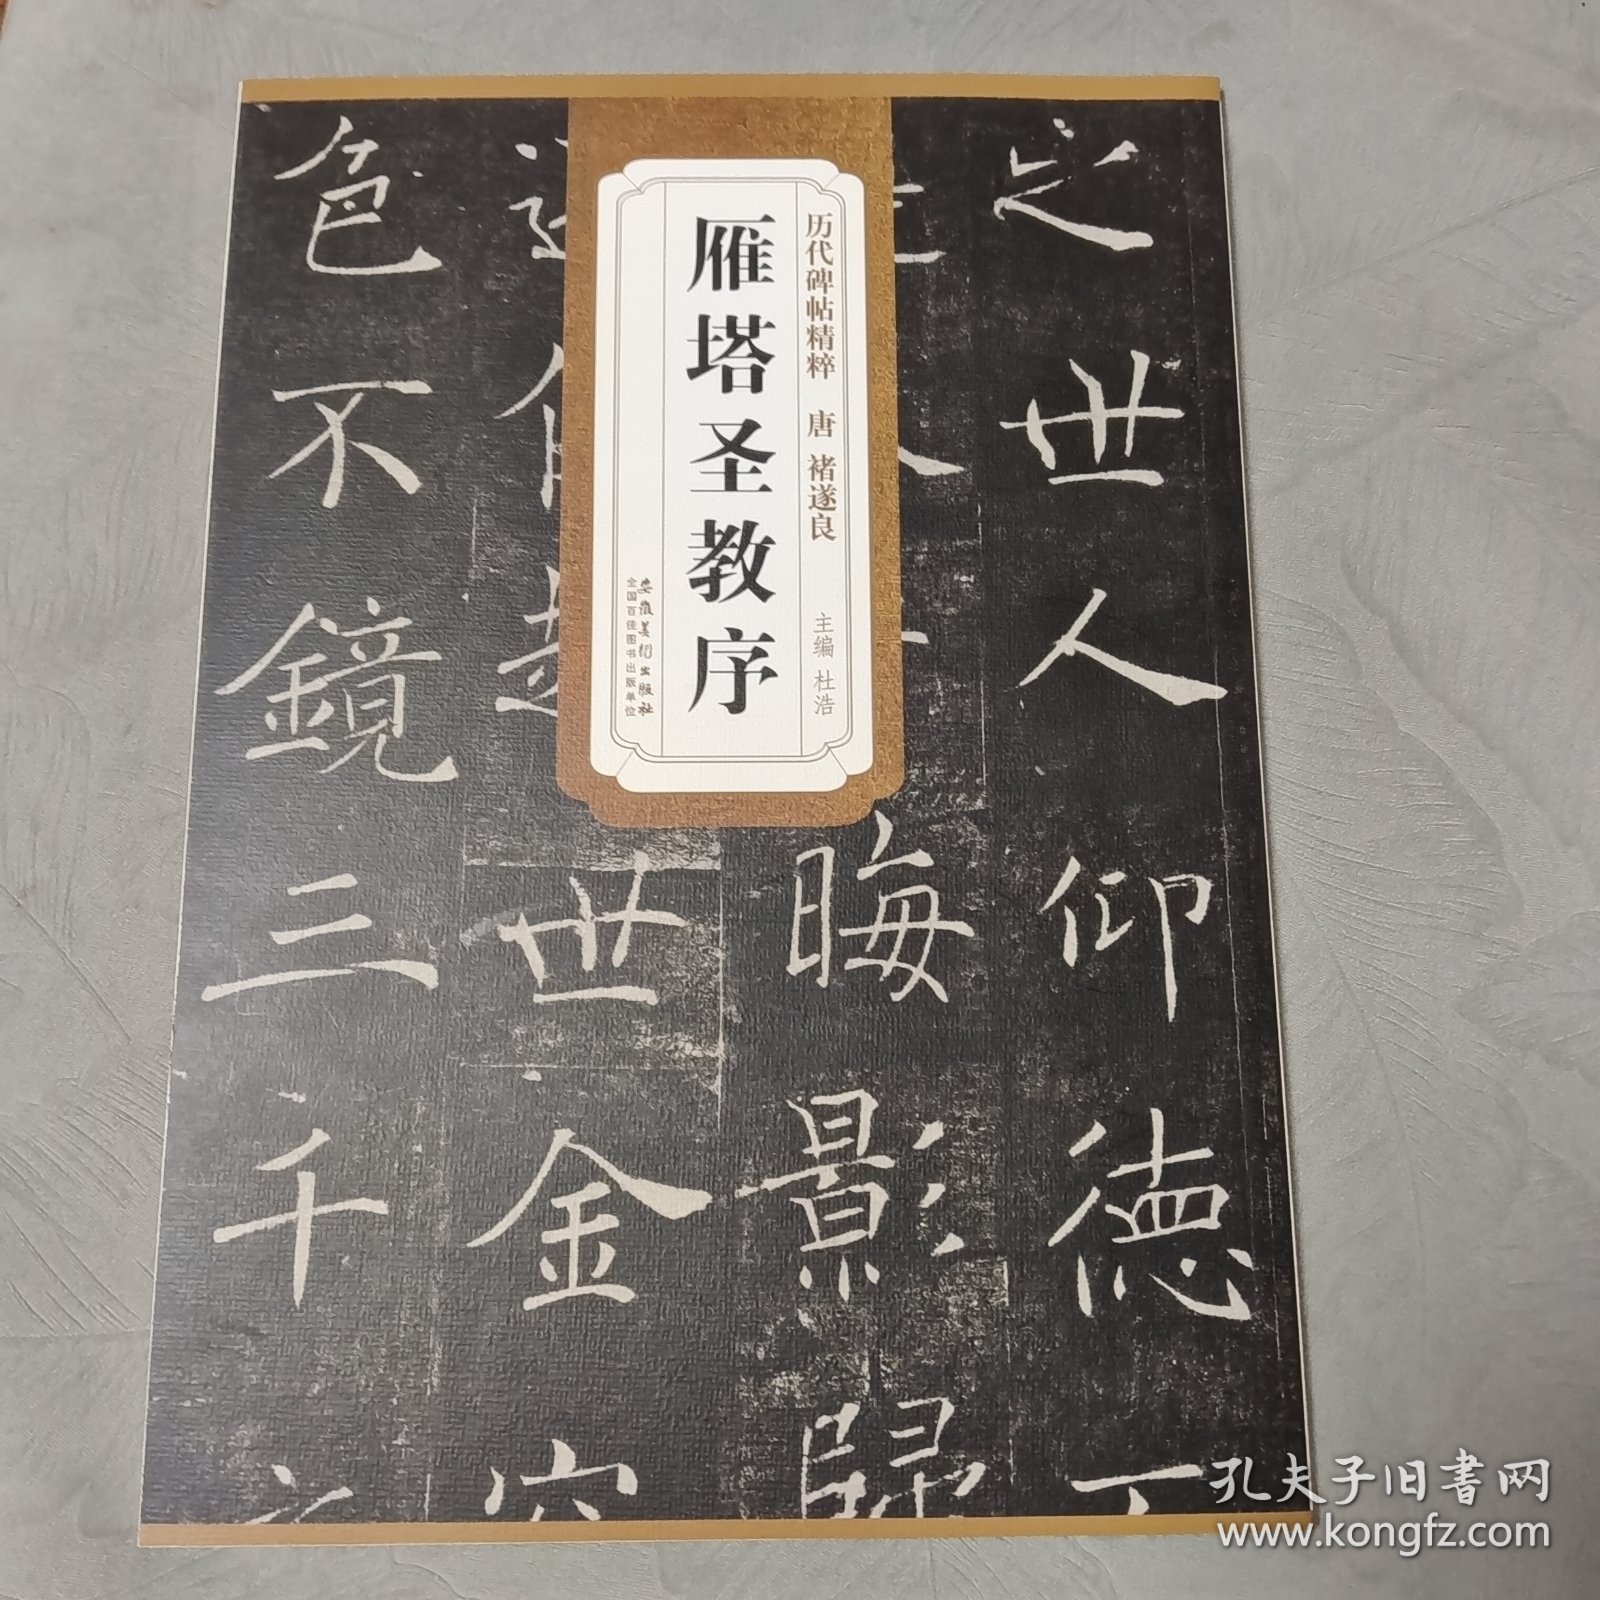 历代碑帖精粹 唐 褚遂良
主编 杜浩
雁塔圣教序
安徽美术出版社
全国百佳图书出版单位
之世人仰德
晦影歸
世金容
色不鏡三千
孔夫子旧书网
www.kongfz.com